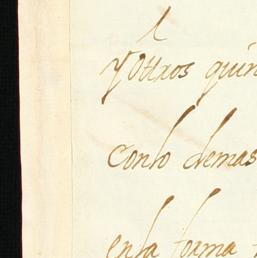 y otros quin
conlo demas
enla forma